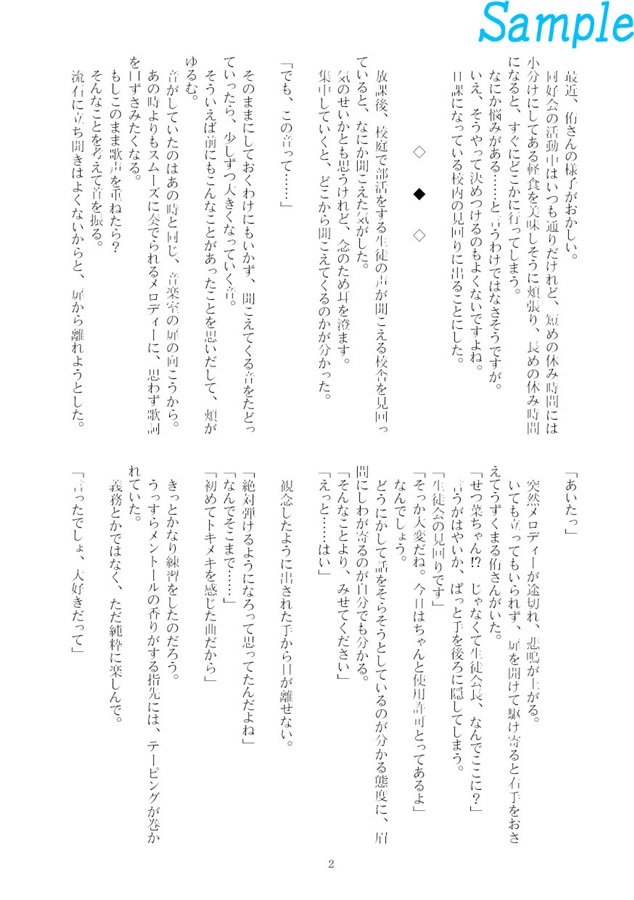 Sample
最近、侑さんの様子がおかしい。
同好会の活動中はいつも通りだけれど、短めの休み時間には
小分けにしてある軽食を美味しそうに頬張り、長めの休み時間
になると、すぐにどこかに行ってしまう。
なにか悩みがある……と言うわけではなさそうですが。
いえ、そうやって決めつけるのもよくないですよね。
日課になっている校内の見回りに出ることにした。
◇ ◆ ◇
放課後、校庭で部活をする生徒の声が聞こえる校舎を見回っ
ていると、なにか聞こえた気がした。
気のせいかとも思うけれど、念のため耳を澄ます。
集中していくと、どこから聞こえてくるのかが分かった。
「でも、この音って……」
そのままにしておくわけにもいかず、聞こえてくる音をたどっ
ていったら、少しずつ大きくなっていく音。
そういえば前にもこんなことがあったことを思いだして、頬が
ゆるむ。
音がしていたのはあの時と同じ、音楽室の扉の向こうから。
あの時よりもスムーズに奏でられるメロディーに、思わず歌詞
を口ずさみたくなる。
もしこのまま歌声を重ねたら？
そんなことを考えて首を振る。
流石に立ち聞きはよくないからと、扉から離れようとした。
「あいたっ」
突然メロディーが途切れ、悲鳴が上がる。
いても立ってもいられず、扉を開けて駆け寄ると右手をおさ
えてうずくまる侑さんがいた。
「せつ菜ちゃん!? じゃなくて生徒会長、なんでここに？」
言うがはやいか、ぱっと手を後ろに隠してしまう。
「生徒会の見回りです」
「そっか大変だね。今日はちゃんと使用許可とってあるよ」
なんでしょう。
どうにかして話をそらそうとしているのが分かる態度に、眉
間にしわが寄るのが自分でも分かる。
「そんなことより、みせてください」
「えっと……はい」
観念したように出された手から目が離せない。
「絶対弾けるようになろって思ってたんだよね」
「なんでそこまで……」
「初めてトキメキを感じた曲だから」
きっとかなり練習をしたのだろう。
うっすらメントールの香りがする指先には、テーピングが巻か
れていた。
義務とかではなく、ただ純粋に楽しんで。
「言ったでしょ、大好きだって」
2